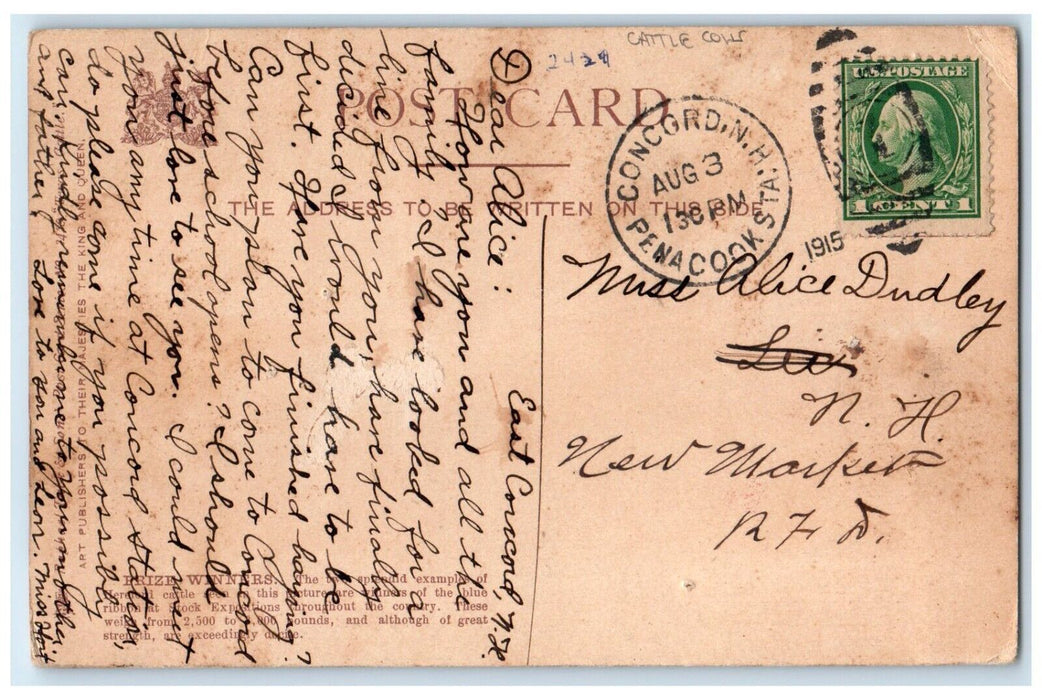 CATTLE COWS
2424
POST CARD
THE ADDRESS TO BE WRITTEN ON THIS SIDE
CONCORD, N.H.
AUG 3
130 PM
1915
PENACOOK STA.
U.S. POSTAGE
1 CENT 1
Miss Alice Dudley
Lee
N. H.
New Market
R. F. D.
East Concord, N.H.
Dear Alice:
How are you and all the
family. I have looked for a
line from you, have finally
decided I would have to be
first. Have you finished haying?
Can you plan to come to Concord
before school opens? I should
just love to see you. I could meet
you any time at Concord station,
do please come if you possibly
can, kindly remember me to your mother
and father & Love to you and Leon. Miss Hoit
ART PUBLISHERS TO THEIR MAJESTIES THE KING AND QUEEN.
PRIZE WINNERS. The two splendid examples of
Hereford cattle seen in this picture are winners of the blue
ribbon at Stock Expositions throughout the country. These
weigh from 2,500 to 3,000 pounds, and although of great
strength, are exceedingly docile.